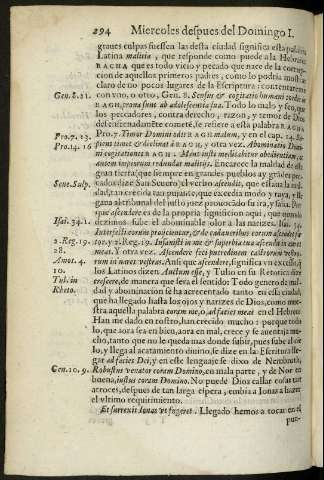 294 Miercoles despues del Domingo I.
graues culpas fuessen las desta ciudad significa esta palabra
Latina malitia, que responde como puede a la Hebrea
RAGHA que es todo vicio y pecado que nace de la corrup-
cion de aquellos primeros padres, como lo podria mostrar
claro de no pocos lugares de la Escriptura: contentareme
Gen. 8. 21. con vno, o otro, Gen. 8. Sensus & cogitatio humani cordis in
RAGH, prona sunt ab adolescentia sua. Todo lo malo y feo, que
los peccadores, contra derecho, razon, y temor de Dios
desenfrenadamente comete, se refiere a esta palabra RAGHA
Pro. 7. 13. Pro. 7. Timor Domini odit RAGH malum, y en el cap. 14. Sa-
Pro. 14. 16 piens timet & declinat à RAGH, y otra vez. Abominatio Domi-
ni cogitationes RAGH.
autem impiorum redundat malitijs. Encarece la maldad de esta
gran tierra (que siempre en grandes pueblos ay grandes pec-
Senc. Sulp. cados) dize San Seuero
dad, tan crecida tan pujante, que exceda modo y raya, y llegara
para al tribunal del justo juez prouocado su ira, y saña. Por-
que ascendere es de la propria significacion aqui, quando
Isai. 34. 1. dezimos sube el abominable olor a las narizes. Isai. 34.
Interfecti eorum proijcientur, & de cadaueribus eorum ascendet fœ-
2. Reg. 19. tor, y 2. Reg. 19. Insanisti in me & superbia tua ascendit in aures
28. meas. Y otra vez. Ascendere feci putredinem castrorum vestro-
Amos. 4. rum in nares vestras. Ansi que ascendere, significa vn excesso q̃
10. los Latinos dizen. Auctum esse, y Tulio en su Retorica dize
Tul. in crescere, de manera que sera el sentido: Todo genero de mal-
Rheto. dad y abominacion se ha acrecentado tanto en essa ciudad,
que ha llegado hasta los ojos y narizes de Dios, como mue-
stra aquella palabra coram me, o ad facies mei en el Hebreo.
Han me dado en rostro, han crecido mucho: porque todo
lo, que aora sea en bien, aora en mal, crece y se auentaja mu-
cho, tanto que no le queda mas donde subir, pues sube al cie-
lo, y llega al acatamiento diuino, se dize en la Escritura lle-
gar ad facies Dei, y en este lenguaje se dixo de Nembroth,
Gen. 10. 9. Robustus venator coram Domino, en mala parte, y de Noe en
buena, iustus coram Domino. No puede Dios callar cosas tan
atroces, despues de tan larga espera, embia a Ionas a hazer
el vltimo requirimiento.
Et surrexit Ionas vt fugeret. Llegado hemos a tocar en el
pun-